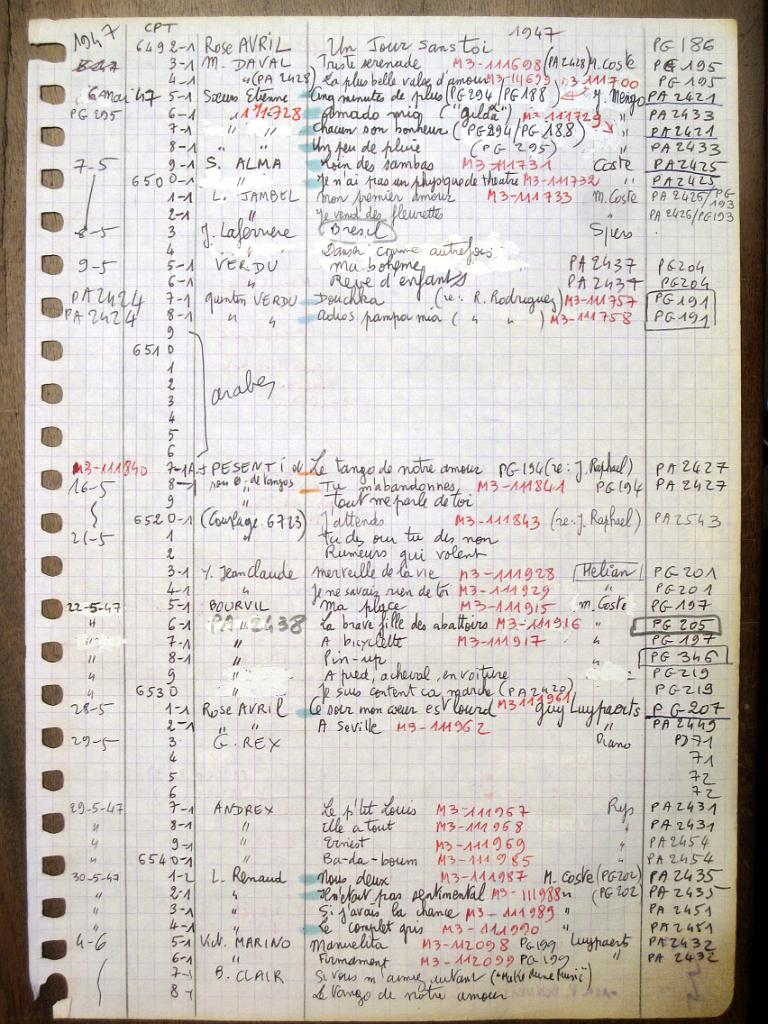 1947 CPT 1947
6492-1 Rose AVRIL Un Jour sans toi PG 186
3-1 M. DAVAL Triste serenade M3-111698 (PA2428) M. Coste PG 195
4-1 " (PA 2428) La plus belle valse d'amour M3-111699 M3-111700 PG 195
6 mai 47 5-1 Soeurs Etienne Cinq minutes de plus (PG 294 / PG 188) Y. Mengo PA 2421
PG 295 6-1 " 111728 Amado mio ("Gilda") M3-111729 " PA 2433
7-1 " chacun son bonheur (PG 294 / PG 188) " PA 2421
8-1 " Un peu de pluie (PG 295) " PA 2433
7-5 9-1 S. ALMA Loin des sambas M3-111731 Coste PA 2425
6500-1 " Je n'ai pas un physique de theatre M3-111732 " PA 2425
1-1 L. JAMBEL mon premier amour M3-111733 M. Coste PA 2426/PG 193
2-1 " Je vend des fleurettes PA 2426/PG193
8-5 3 J. Laferrere Bresil Spers
4 " Danser comme autrefois
9-5 5-1 VERDU ma boheme PA 2437 PG204
6-1 " Reve d'enfants PA 2437 PG204
PA 2424 7-1 quintin VERDU Douchka (re: R. Rodriguez) M3-111757 PG 191
PA 2424 8-1 " " adios pampa mia ( " " ) M3-111758 PG 191
9
6510
1
2 arabes
3
4
5
6
M3-111840 7-1 PESENTI Le tango de notre amour PG 194 (re: J. Raphael) PA 2427
16-5 8-1 son O. de tangos Tu m'abandonnes M3-111841 PG 194 PA 2427
9 " Tout me parle de toi
6520-1 (Couplage 6723) J'attends M3-111843 (re: J. Raphael) PA 2543
21-5 1 " tu dis oui tu dis non
2 Rumeurs qui volent
3-1 Y. Jeanclaude merveille de la vie M3-111928 Helian PG 201
4-1 " Je ne savais rien de toi M3-111929 " PG 201
22-5-47 5-1 BOURVIL Ma place M3-111915 M. Coste PG 197
" 6-1 PA 2438 La brave fille des abattoirs M3-111916 " PG 205
" 7-1 " A bicyclette M3-111917 " PG 197
" 8-1 " Pin-up " PG 346
" 9 " A pied, a cheval, en voiture PG 219
" 6530 " Je suis content ca marche (PA 2420) PG 219
28-5 1-1 Rose AVRIL Ce soir mon coeur est lourd M3-111961 Guy Luypaerts PG 207
2-1 " " A Seville M3-111962 PA 2449
29-5 3 G. REX Piano PD 71
4 71
5 72
6 72
29-5-47 7-1 ANDREX Le p'tit Louis M3-111967 Rys PA 2431
" 8-1 " Elle a tout M3-111968 " PA 2431
" 9-1 " Ernest M3-111969 " PA 2454
" 6540-1 " Ba-da-boum M3-111985 " PA 2454
30-5-47 1-2 L. Renaud Nous deux M3-111987 M. Coste (PG202) PA 2435
" 2-1 " Il n'etait pas sentimental M3-111988 " (PG 202 PA 2435
" 3-1 " Si j'avais la chance M3-111989 " PA 2451
" 4-1 " Le complet gris M3-111990 " PA 2451
4-6 5-1 Vict. MARINO Manuelita M3-112098 PG 199 Luypaerts PA 2432
6-1 " Firmament M3-112099 PG 199 " PA 2432
7-1 B. CLAIR Si vous m'aimez autant ("Make mine Music")
8-1 Le Tango de notre amour